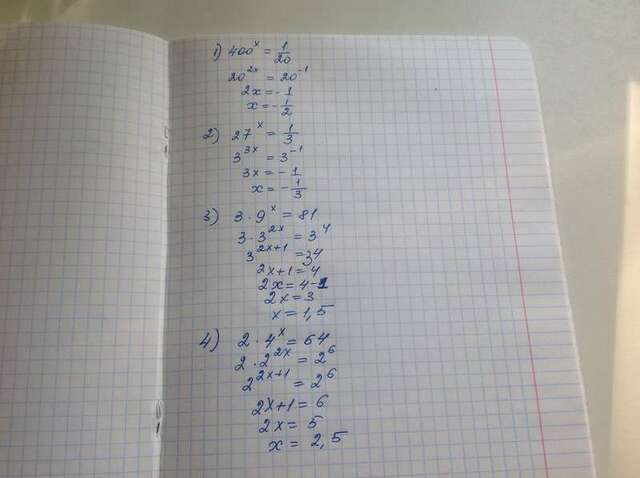 1) 400^x = 1/20
20^2x = 20^-1
2x = -1
x = -1/2
2) 27^x = 1/3
3^3x = 3^-1
3x = -1
x = -1/3
3) 3 · 9^x = 81
3 · 3^2x = 3^4
3^2x+1 = 3^4
2x+1 = 4
2x = 4-1
2x = 3
x = 1,5
4) 2 · 4^x = 64
2 · 2^2x = 2^6
2^2x+1 = 2^6
2x+1 = 6
2x = 5
x = 2,5